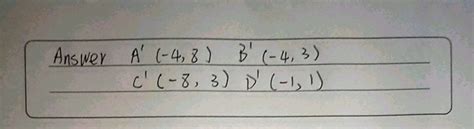 Answer A' (-4, 8) B' (-4, 3)
C' (-8, 3) D' (-1, 1)